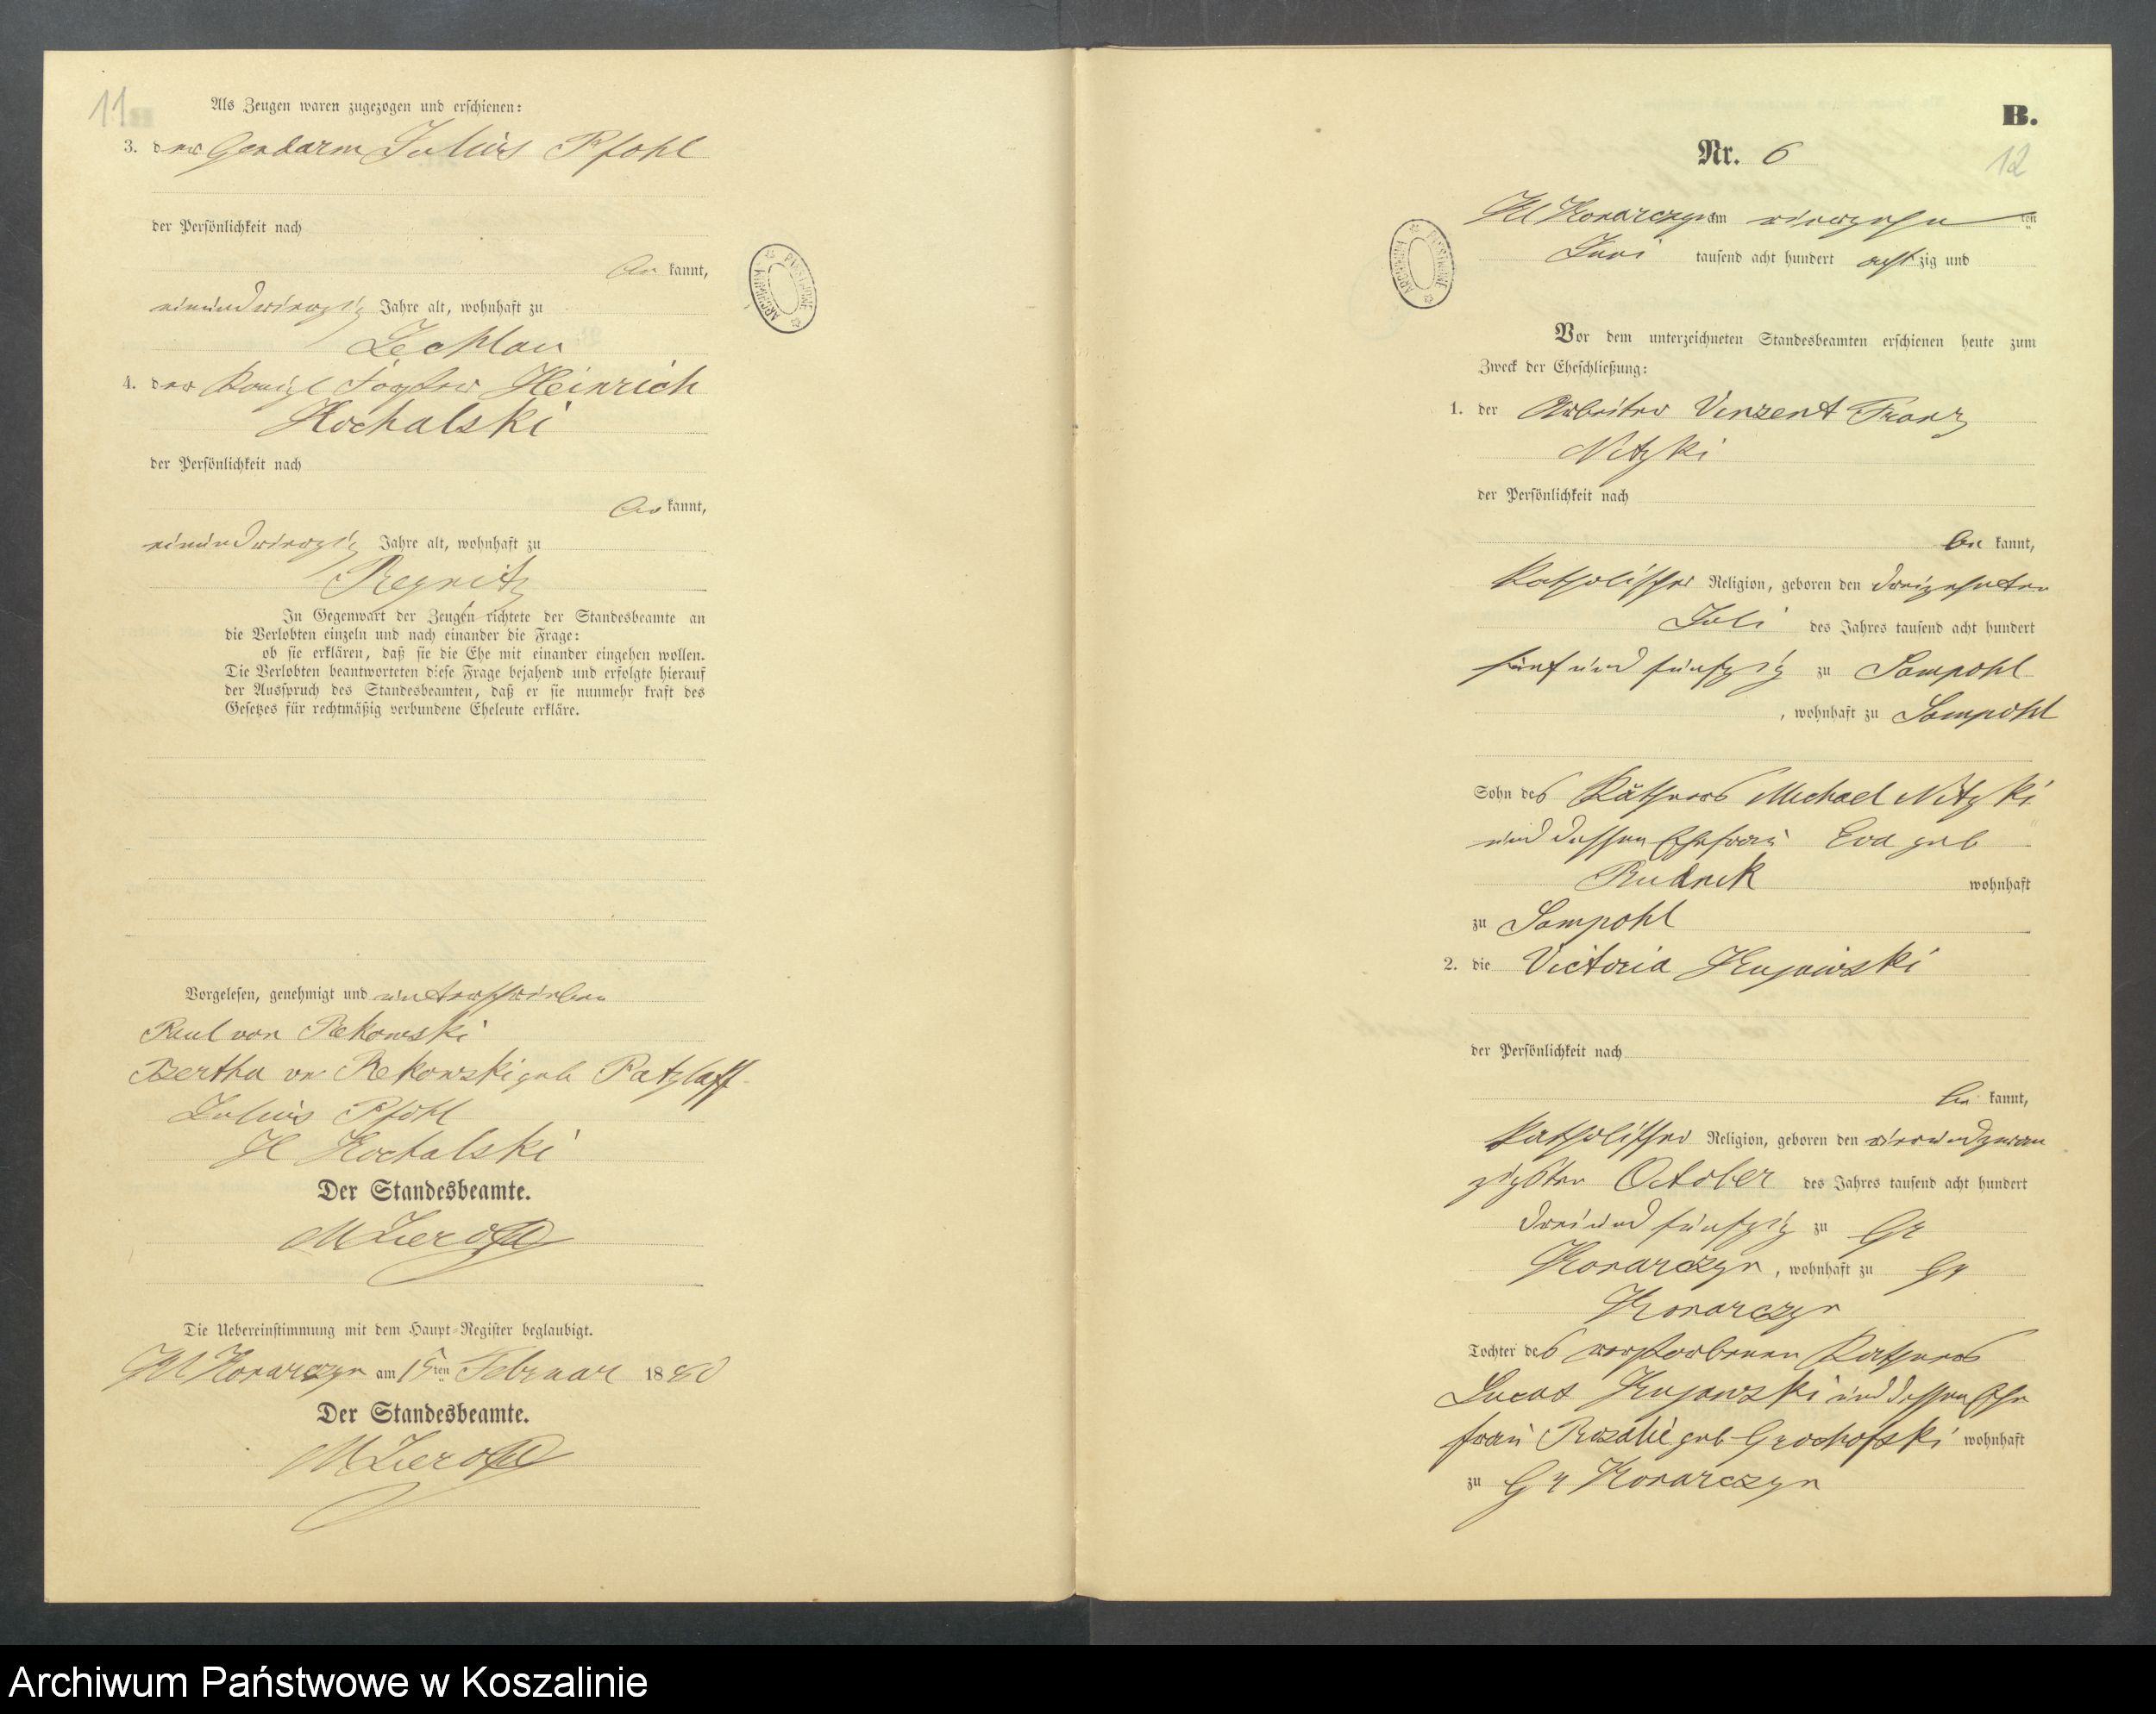 11
Als Zeugen waren zugezogen und erschienen:
3. der Gendarm Julius Pfohl
der Persönlichkeit nach
be kannt,
einundvierzig Jahre alt, wohnhaft zu
Zechlau
4. der Königl Förster Heinrich
Kochalski
der Persönlichkeit nach
be kannt,
einundvierzig Jahre alt, wohnhaft zu
Pegnitz
In Gegenwart der Zeugen richtete der Standesbeamte an
die Verlobten einzeln und nach einander die Frage:
ob sie erklären, daß sie die Ehe mit einander eingehen wollen.
Die Verlobten beantworteten diese Frage bejahend und erfolgte hierauf
der Ausspruch des Standesbeamten, daß er sie nunmehr kraft des
Gesetzes für rechtmäßig verbundene Eheleute erkläre.
Vorgelesen, genehmigt und unterschrieben
Paul von Rekowski
Bertha von Rekowski geb Patzlaff
Julius Pfohl
H Kochalski
Der Standesbeamte.
Die Uebereinstimmung mit dem Haupt-Register beglaubigt.
Kl Konarczyn am 15ten Februar 1880
Der Standesbeamte.
ARCHIWUM PAŃSTWOWE
B.
12
Nr. 6
Kl Konarczyn am vierzehn ten
Juni tausend acht hundert achtzig und
ARCHIWUM PAŃSTWOWE
Vor dem unterzeichneten Standesbeamten erschienen heute zum
Zweck der Eheschließung:
1. der Arbeiter Vinzent Franz
Nitzki
der Persönlichkeit nach
be kannt,
katholischer Religion, geboren den dreizehnten
Juli des Jahres tausend acht hundert
fünf und fünfzig zu Sampohl
, wohnhaft zu Sampohl
Sohn des Käthners Michael Nitzki
und dessen Ehefrau Eva geb
Rudnik wohnhaft
zu Sampohl
2. die Victoria Kujawski
der Persönlichkeit nach
be kannt,
katholischer Religion, geboren den vierundzwan
zigsten October des Jahres tausend acht hundert
dreiund fünfzig zu Gr
Konarczyn, wohnhaft zu Gr
Konarczyn
Tochter des verstorbenen Kathners
Lucas Kujawski und dessen Ehe
frau Rosalie geb Grochofski wohnhaft
zu Gr Konarczyn
Archiwum Państwowe w Koszalinie